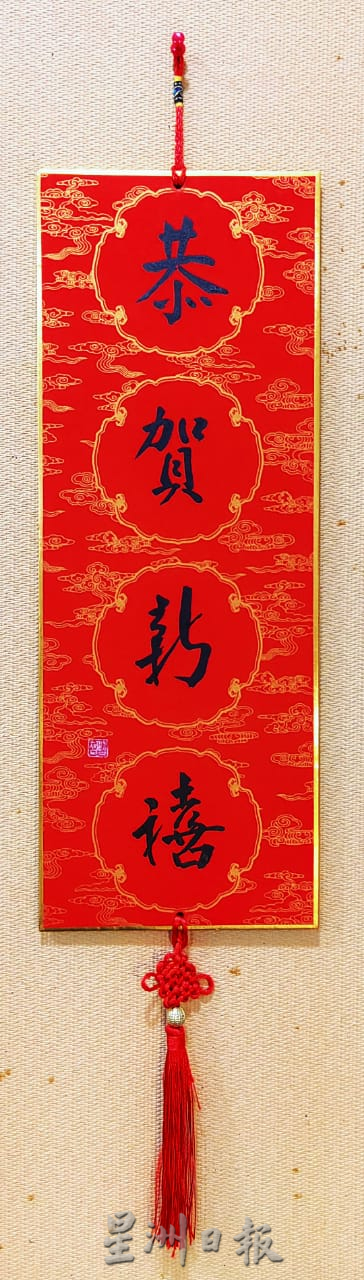 恭
賀
新
禧
星洲日報